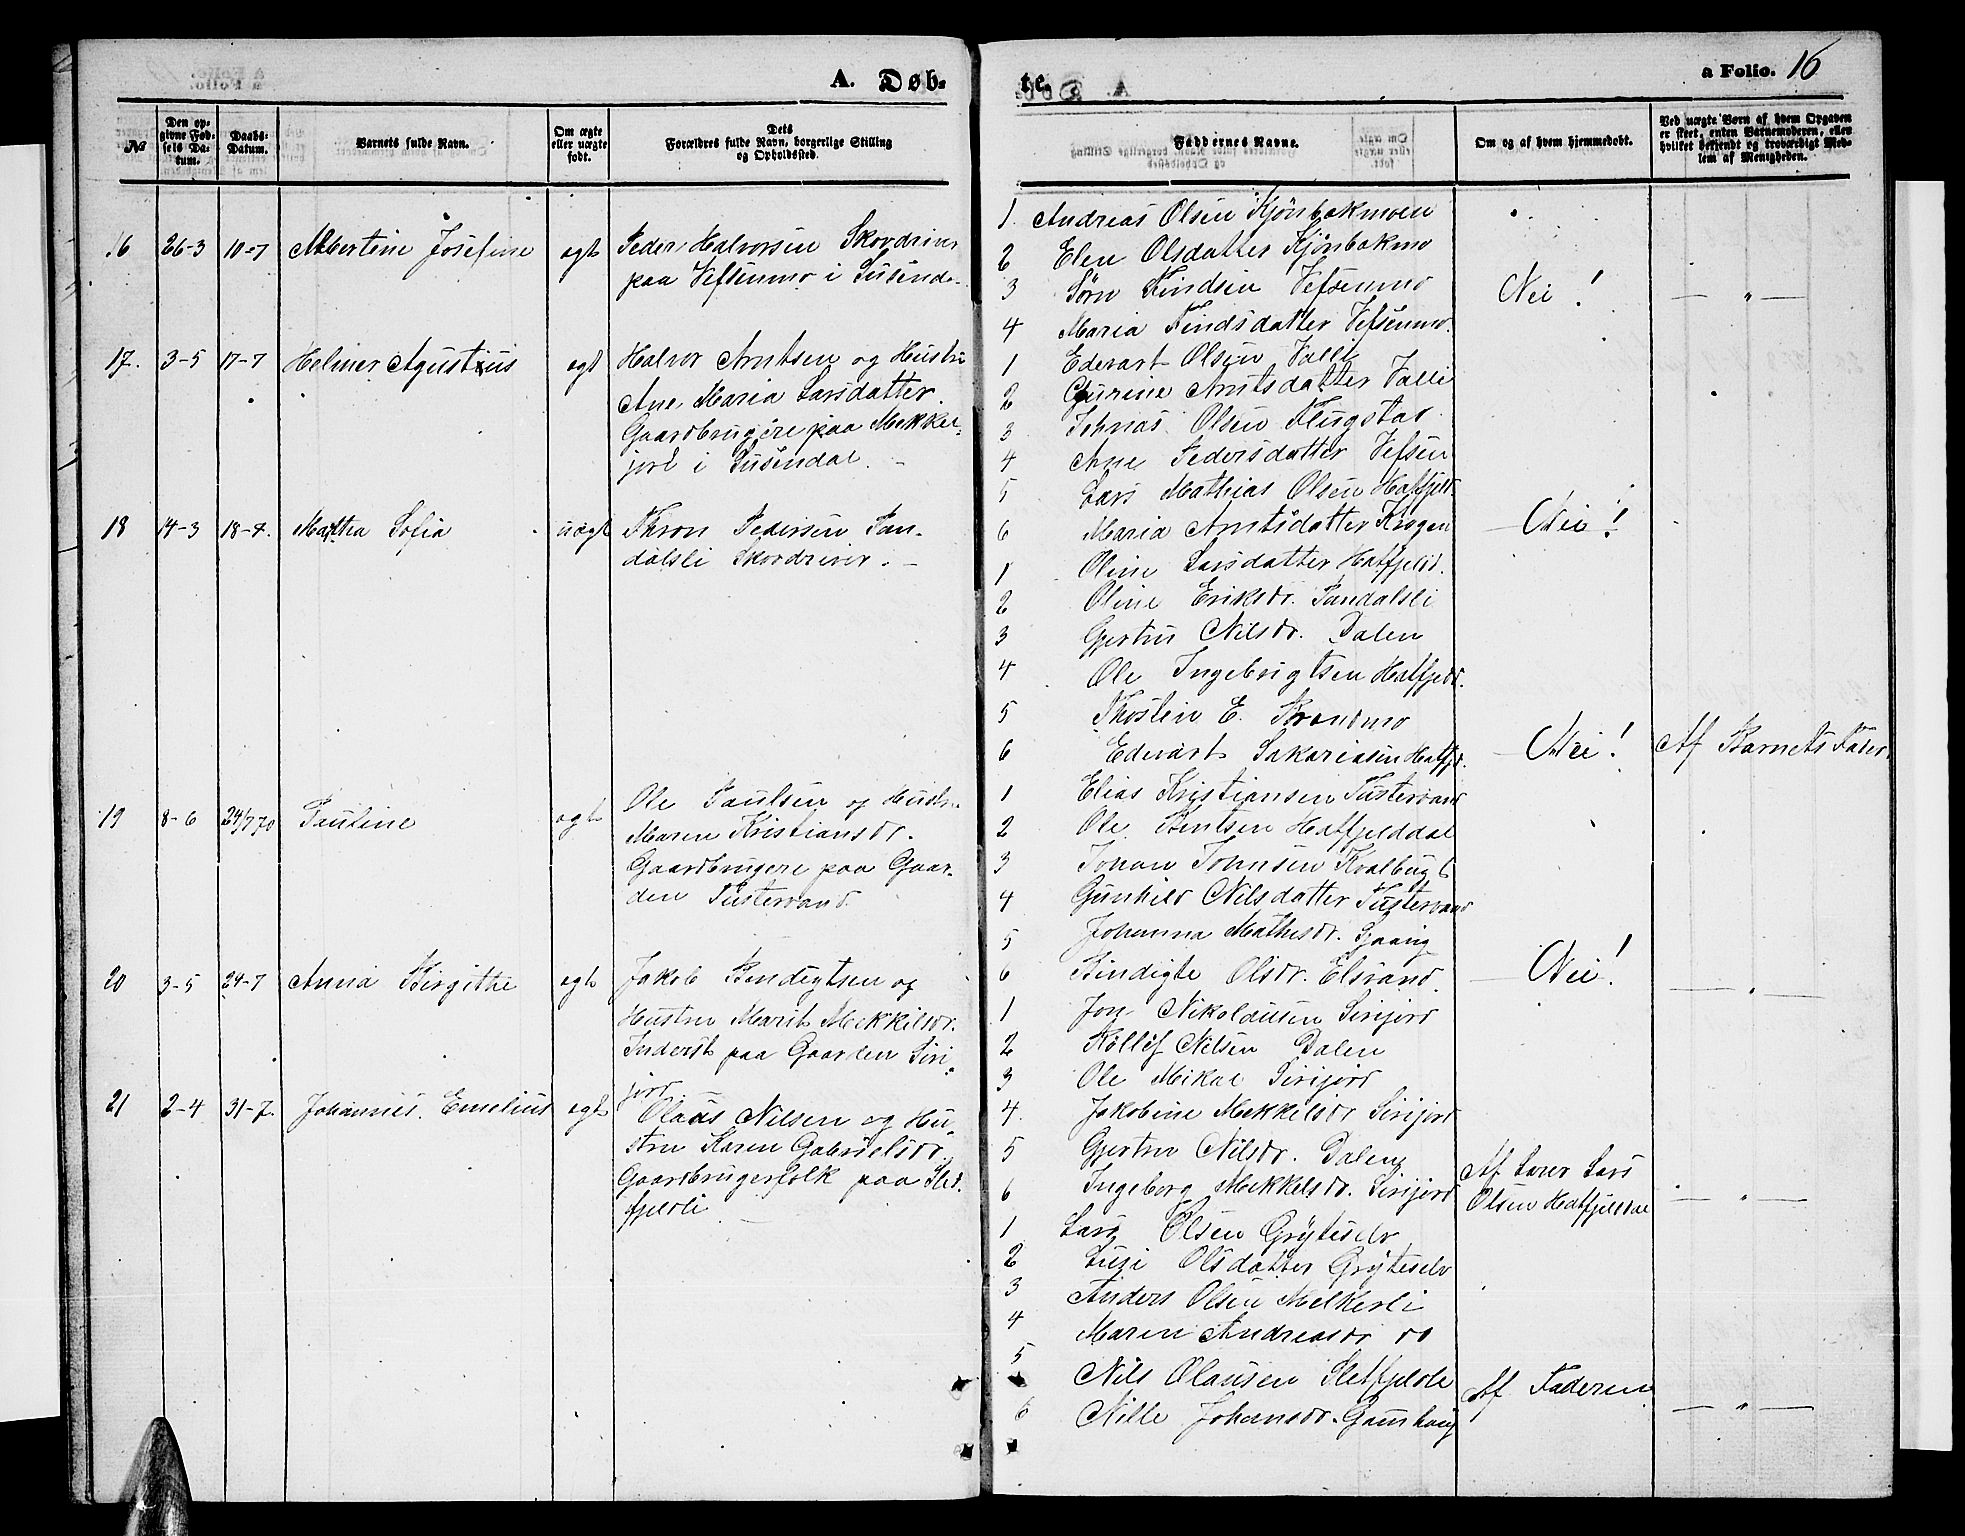 A. Døb-
№
Den op-
givne Fød-
sels Da-
tum.
Daabs-
Datum.
Barnets fulde Navn.
Om ægte
eller uægte
født.
Dets
Forældres fulde Navn, borgerlige Stilling
og Opholdssted.
16 26-3 10-7 Albertine Josefine egt Peder Halvorsen Skovdriver
paa Vefsenmo i Susenda.
17. 3-5 17-7 Helmer Agustius egt Halvor Arntsen og Hustru
Ane Maria Larsdatter.
Gaardbrugere paa Mekker-
jord i Susendal. -
18 14-3 18-7. Martha Sofia uægt Thron Pedersen Pan-
dalsli Skovdriver. -
19 8-6 24/7 70 Pauline egt Ole Paulsen og Hustru
Maren Kristiansdr.
Gaardbrugere paa Gaar-
den Tustervand
20 3-5 24-7 Anna Birgithe egt Jakob Bendigtsen og
Hustru Marit Mekkilsdr.
Inderst paa Gaarden Siri-
jord
21 2-4 31-7. Johannes. Emelius egt Olaus Nilsen og Hu-
stru Karen Gabrielsdr.
Gaardbrugerfolk paa Slet-
fjeldli
te.
a Folio. 16
Faddernes Navne.
Om og af hvem hjemmedøbt.
Ved uægte Børn af hvem Opgaven
er skeet, enten Barnemoderen, eller
hvilket bekjendt og troværdigt Med-
lem af Menigheden.
1. Andreas Olsen Kjønbakmoen
2 Elen Olsdatter Kjønbakmo
3 Sørn Findsen Vefsenmo Nei! — " —
4 Maria Findsdatter Vefsenmo.
1 Edevart Olsen Valli
2 Gurine Arntsdatter Valli
3 Johnas Olsen Flugstad
4 Ane Pedersdatter Vefsen
5 Lars Mathias Olsen Hatfjeld.
6 Maria Arntsdatter Krogen — Nei!
1 Oline Larsdatter Hatfjeld.
2 Oline Eriksdr. Pandalsli
3 Gjertru Nilsdr. Dalen
4 Ole Ingebrigtsen Hatfjeld.
5 Thostin E. Strandmo
6 Edevart Sakariasen Hatfjd. — Nei! Af Barnets Fader
1 Elias Kristiansen Tustervand
2 Ole Bentsen Hatfjelddal
3 Johan Johnsen Kvalbugt
4 Gunhild Nilsdatter Tustervand
5 Johanna Mathisdr.
6 Bindigte Olsdr. Elsvand. — Nei! — " —
1 Jon Nikolausen Sirijord
2 Kollef Nilsen Dalen
3 Ole Mikal Sirijord
4. Jakobine Mekkilsdr Sirijord
5 Gjertru Nilsdr. Dalen
6 Ingeborg Mekkelsdr. Sirijord Af Lærer Lars
Olsen Hatfjelddal — " —
1 Lars Olsen Grytiselv
2 Olsdatter Grytiselv
3 Anders Olsen Melkerli
4 Maren Andreasdr do
5 Nils Olausen Sletfjelde
6 Nille Johansdr. Af Faderen. — " —